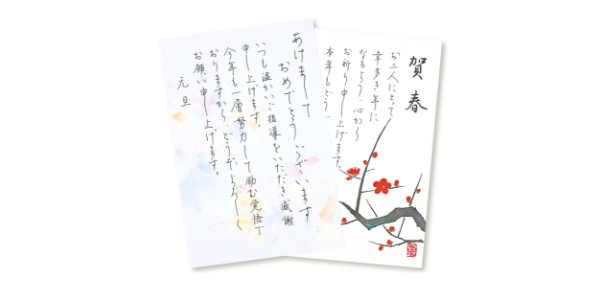 あけまして
おめでとうございます
いつも温かいご指導をいただき感謝
申し上げます。
今年も一層努力して励む覚悟で
おりますから、どうぞよろしく
お願い申し上げます。
元旦
賀春
お二人にとって
幸多き年に
なるよう、心から
お祈り申し上げます。
本年もどうぞ